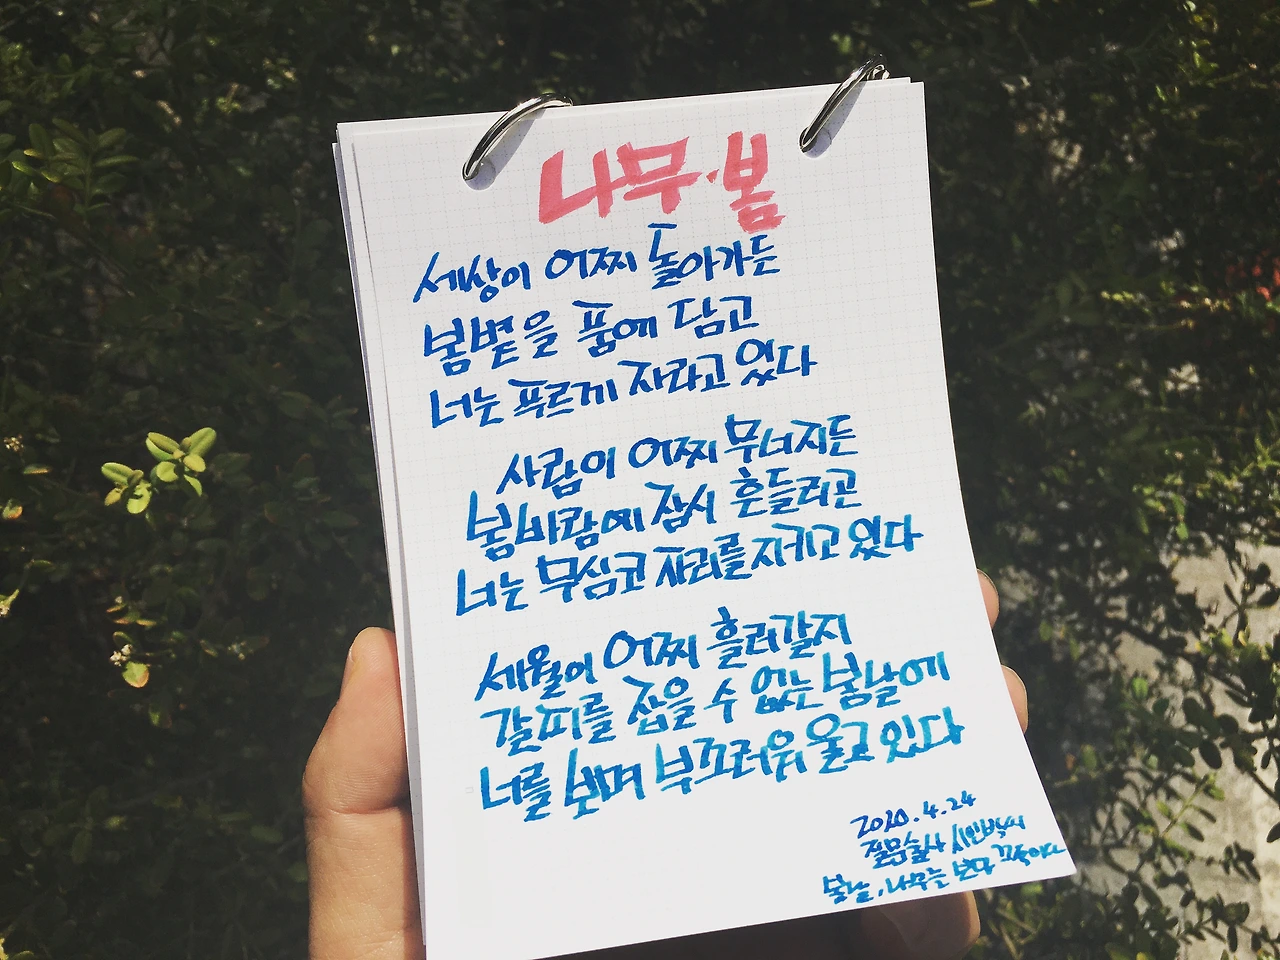 나무·봄
세상이 어찌 돌아가든
봄볕을 품에 담고
너는 푸르게 자라고 있다
사람이 어찌 무너지든
봄바람에 잠시 흔들리곤
너는 무심코 자리를 지키고 있다
세월이 어찌 흘러갈지
갈피를 잡을 수 없는 봄날에
너를 보며 부끄러워 울고 있다
2020.4.24
질문술사 시인박씨
봄날, 나무를 보다